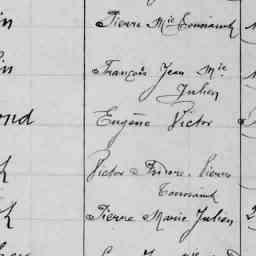 in Pierre Mie Toussaint
in François Jean Mie
Julien
ond Eugène Victor
Victor Isidore Pierre
Toussaint
Pierre Marie Julien 2